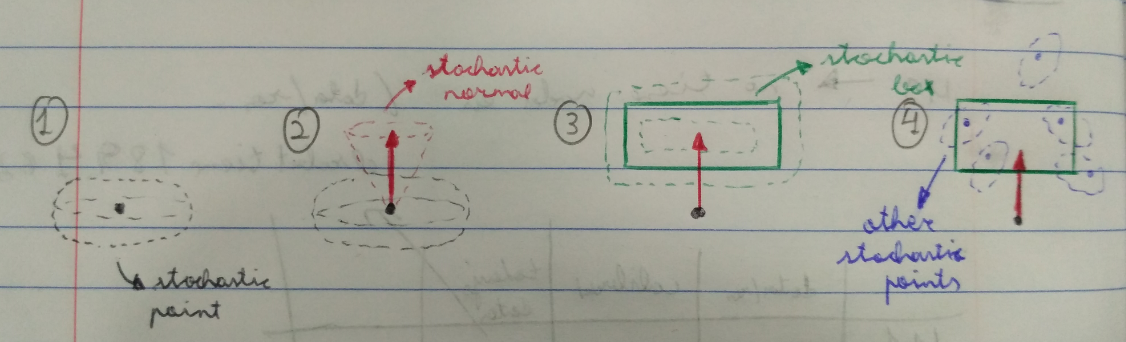 1
stochastic
point
2
stochastic
normal
3
stochastic
box
4
other
stochastic
points